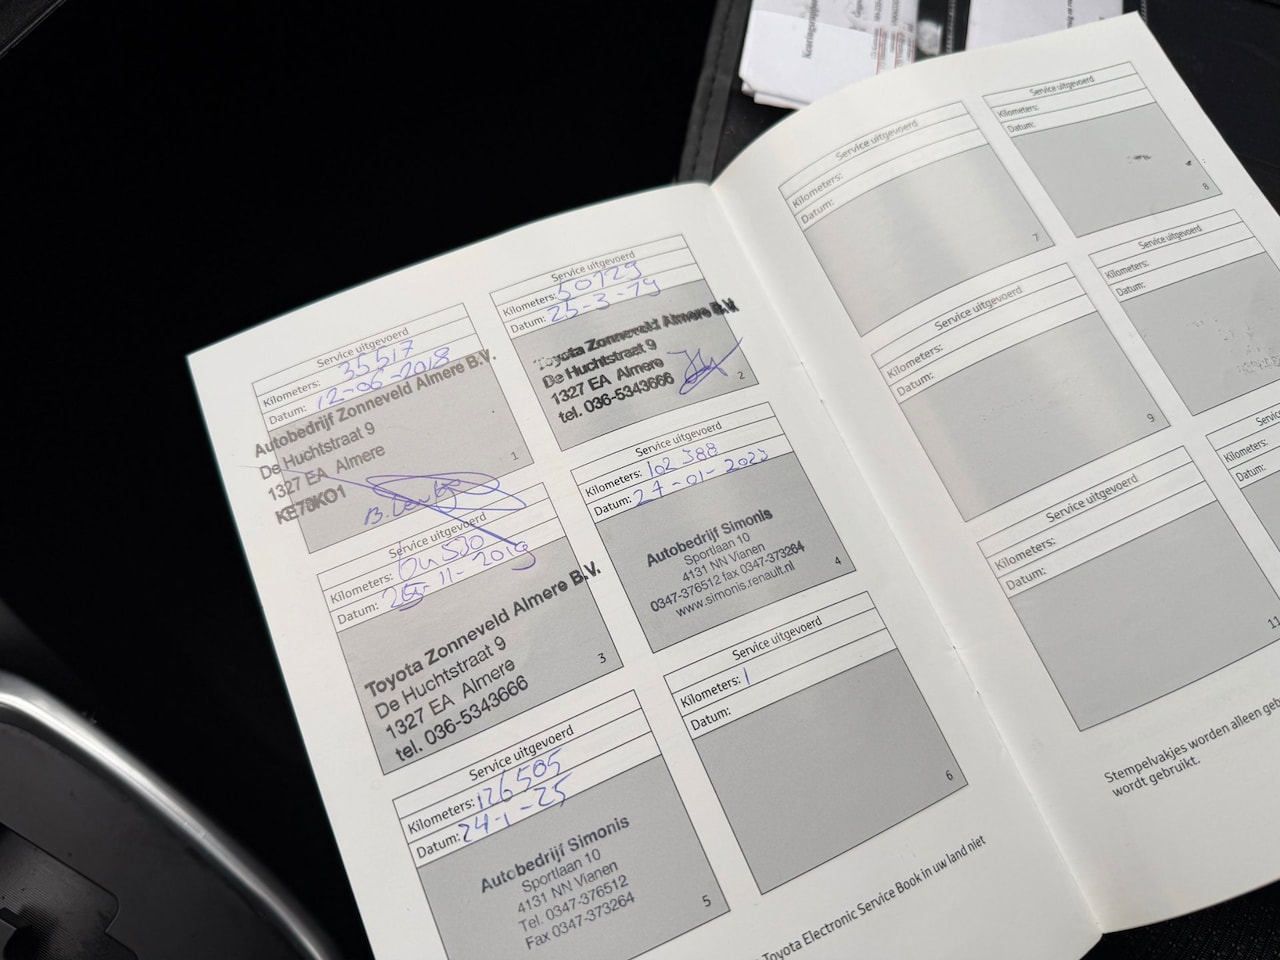 Service uitgevoerd
Kilometers: 35517
Datum: 12-06-2018
Autobedrijf Zonneveld Almere B.V.
De Huchtstraat 9
1327 EA Almere
KE78KO1
1
Service uitgevoerd
Kilometers: 50729
Datum: 25-3-19
Toyota Zonneveld Almere B.V.
De Huchtstraat 9
1327 EA Almere
tel. 036-5343666
2
Service uitgevoerd
Kilometers:
Datum: 11-2019
Toyota Zonneveld Almere B.V.
De Huchtstraat 9
1327 EA Almere
tel. 036-5343666
3
Service uitgevoerd
Kilometers: 102 388
Datum: 27-01-2023
Autobedrijf Simonis
Sportlaan 10
4131 NN Vianen
0347-376512 fax 0347-373264
www.simonis.renault.nl
4
Service uitgevoerd
Kilometers: 126505
Datum: 24-1-25
Autobedrijf Simonis
Sportlaan 10
4131 NN Vianen
Tel. 0347-376512
Fax 0347-373264
5
Service uitgevoerd
Kilometers:
Datum:
6
Toyota Electronic Service Book in uw land niet
Service uitgevoerd
Kilometers:
Datum:
7
Service uitgevoerd
Kilometers:
Datum:
8
Service uitgevoerd
Kilometers:
Datum:
9
Service uitgevoerd
Kilometers:
Datum:
Service uitgevoerd
Kilometers:
Datum:
11
Service
Kilometers:
Datum:
Stempelvakjes worden alleen
wordt gebruikt.